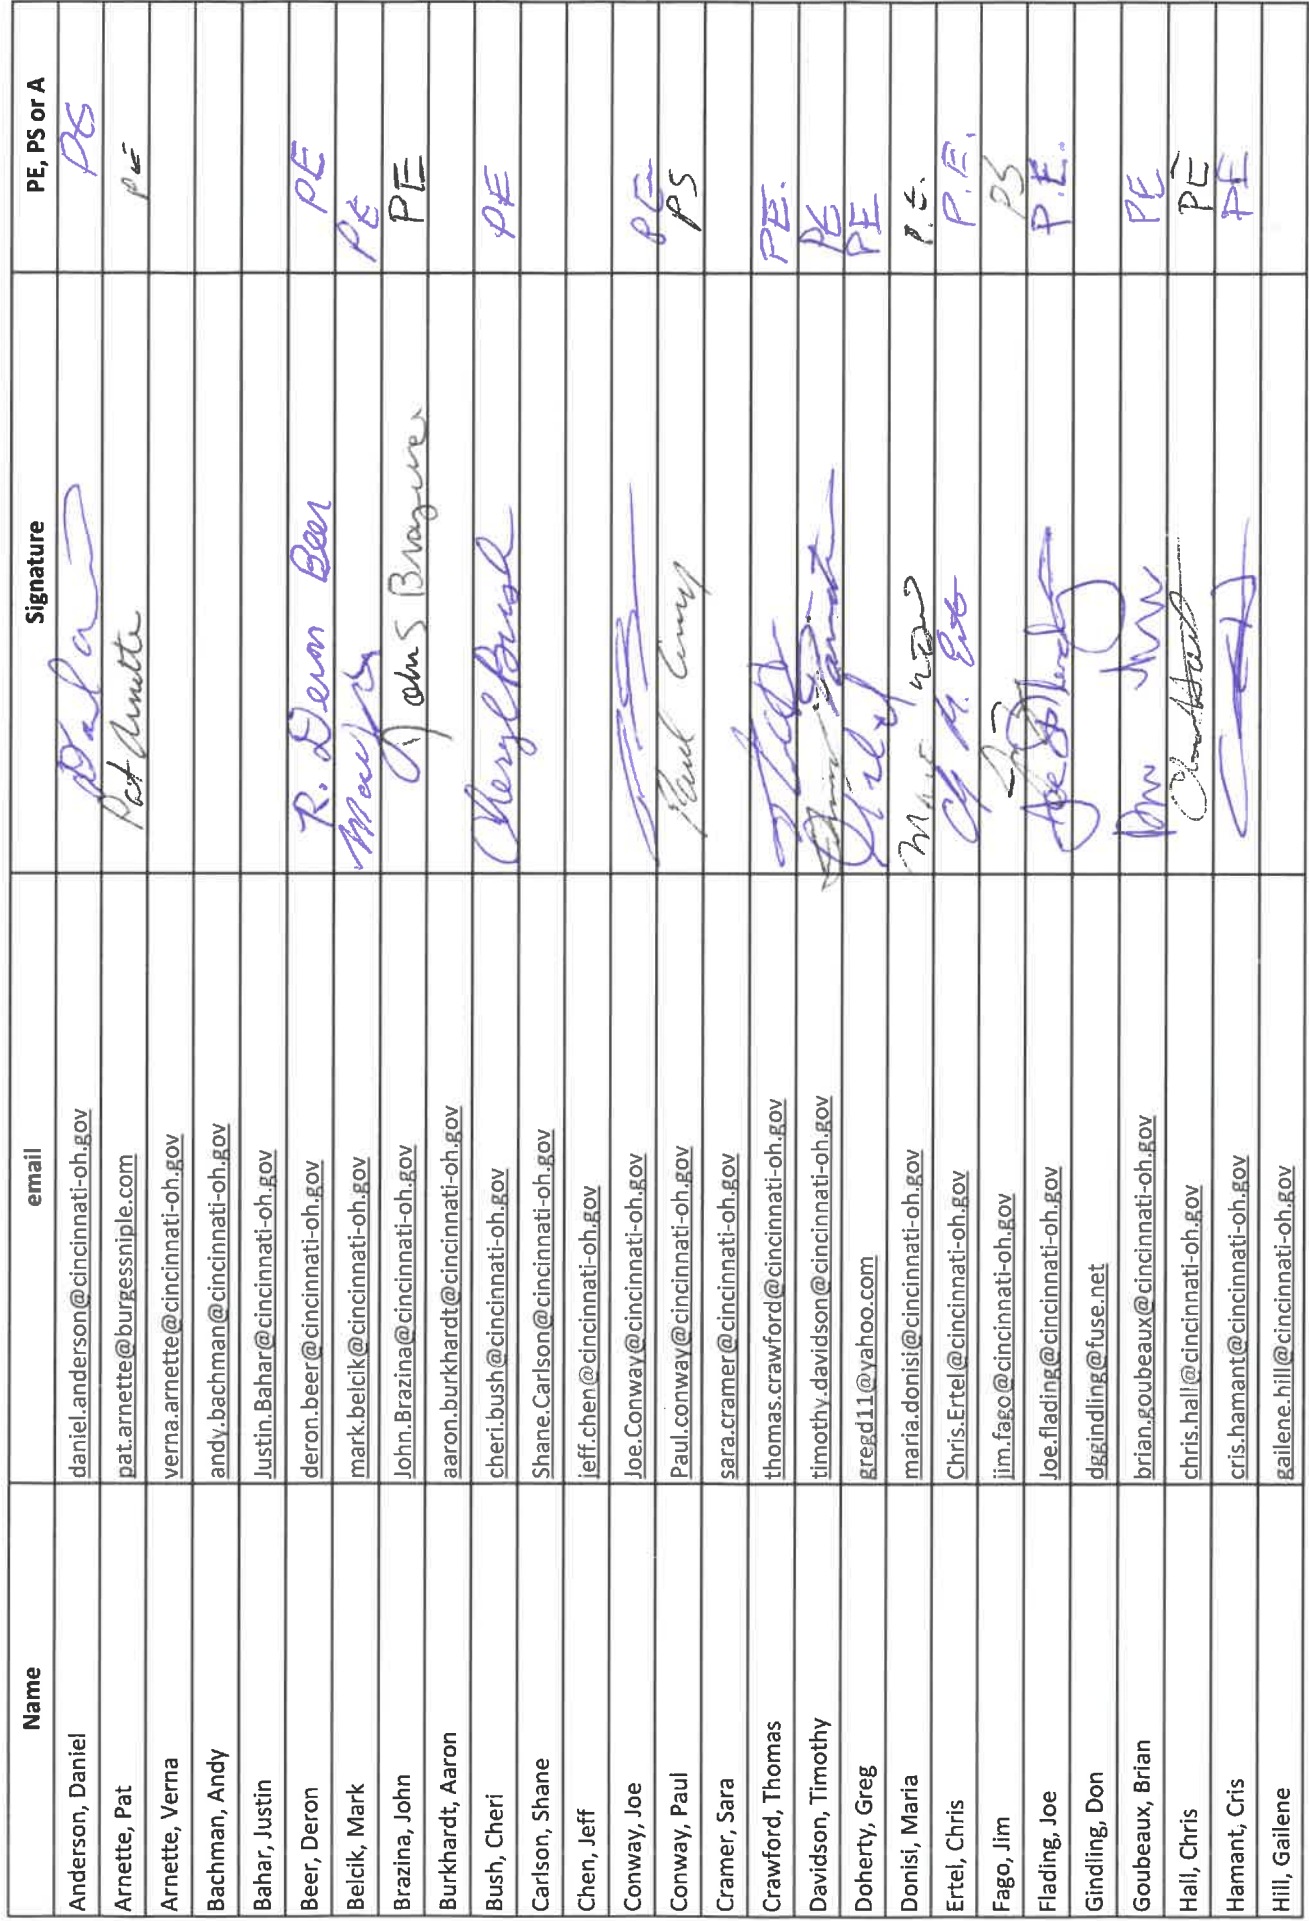 Name email Signature PE, PS or A
Anderson, Daniel daniel.anderson@cincinnati-oh.gov
Arnette, Pat pat.arnette@burgessniple.com Pat Arnette PE
Arnette, Verna verna.arnette@cincinnati-oh.gov
Bachman, Andy andy.bachman@cincinnati-oh.gov
Bahar, Justin Justin.Bahar@cincinnati-oh.gov
Beer, Deron deron.beer@cincinnati-oh.gov R. Deron Beer PE
Belcik, Mark mark.belcik@cincinnati-oh.gov PE
Brazina, John John.Brazina@cincinnati-oh.gov John S Brazina PE
Burkhardt, Aaron aaron.burkhardt@cincinnati-oh.gov
Bush, Cheri cheri.bush@cincinnati-oh.gov Cheryl Bush PE
Carlson, Shane Shane.Carlson@cincinnati-oh.gov
Chen, Jeff jeff.chen@cincinnati-oh.gov
Conway, Joe Joe.Conway@cincinnati-oh.gov PE
Conway, Paul Paul.conway@cincinnati-oh.gov Paul Conway PS
Cramer, Sara sara.cramer@cincinnati-oh.gov
Crawford, Thomas thomas.crawford@cincinnati-oh.gov PE.
Davidson, Timothy timothy.davidson@cincinnati-oh.gov PE
Doherty, Greg gregd11@yahoo.com PE
Donisi, Maria maria.donisi@cincinnati-oh.gov P.E.
Ertel, Chris Chris.Ertel@cincinnati-oh.gov P.E.
Fago, Jim jim.fago@cincinnati-oh.gov PS
Flading, Joe Joe.flading@cincinnati-oh.gov P.E.
Gindling, Don dggindling@fuse.net
Goubeaux, Brian brian.goubeaux@cincinnati-oh.gov PE
Hall, Chris chris.hall@cincinnati-oh.gov PE
Hamant, Cris cris.hamant@cincinnati-oh.gov PE
Hill, Gailene gailene.hill@cincinnati-oh.gov